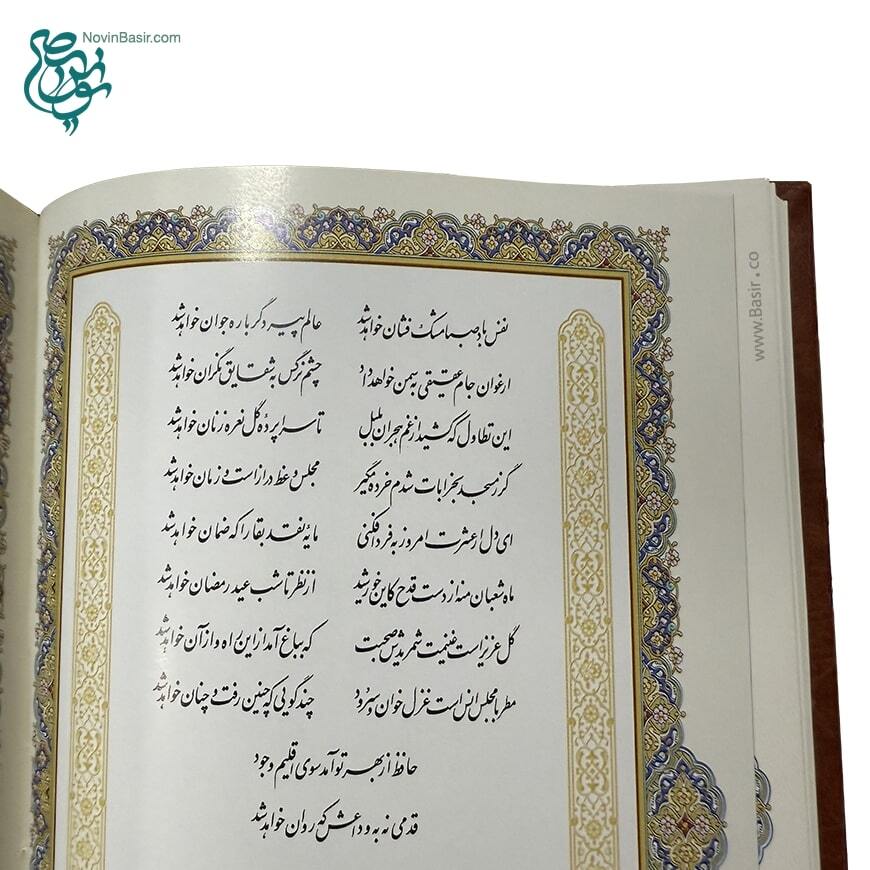 NovinBasir.com
نوین بصیر
www.Basir.co
نفس باد صبا مشک فشان خواهد شد عالم پیر دگر باره جوان خواهد شد
ارغوان جام عقیقی به سمن خواهد داد چشم نرگس به شقایق نگران خواهد شد
این تطاول که کشید از غم هجران بلبل تا سراپرده گل نعره زنان خواهد شد
گر ز مسجد بخرابات شدم خرده مگیر مجلس وعظ درازست و زمان خواهد شد
ای دل ار عشرت امروز به فردا فکنی مایه نقد بقا را که ضمان خواهد شد
ماه شعبان منه از دست قدح کاین خورشید از نظر تا شب عید رمضان خواهد شد
گل عزیز است غنیمت شمریدش صحبت که بباغ آمد از این راه و از آن خواهد شد
مطربا مجلس انس است غزل خوان و سرود چند گویی که چنین رفت و چنان خواهد شد
حافظ از بهر تو آمد سوی اقلیم وجود
قدمی نه به وداعش که روان خواهد شد